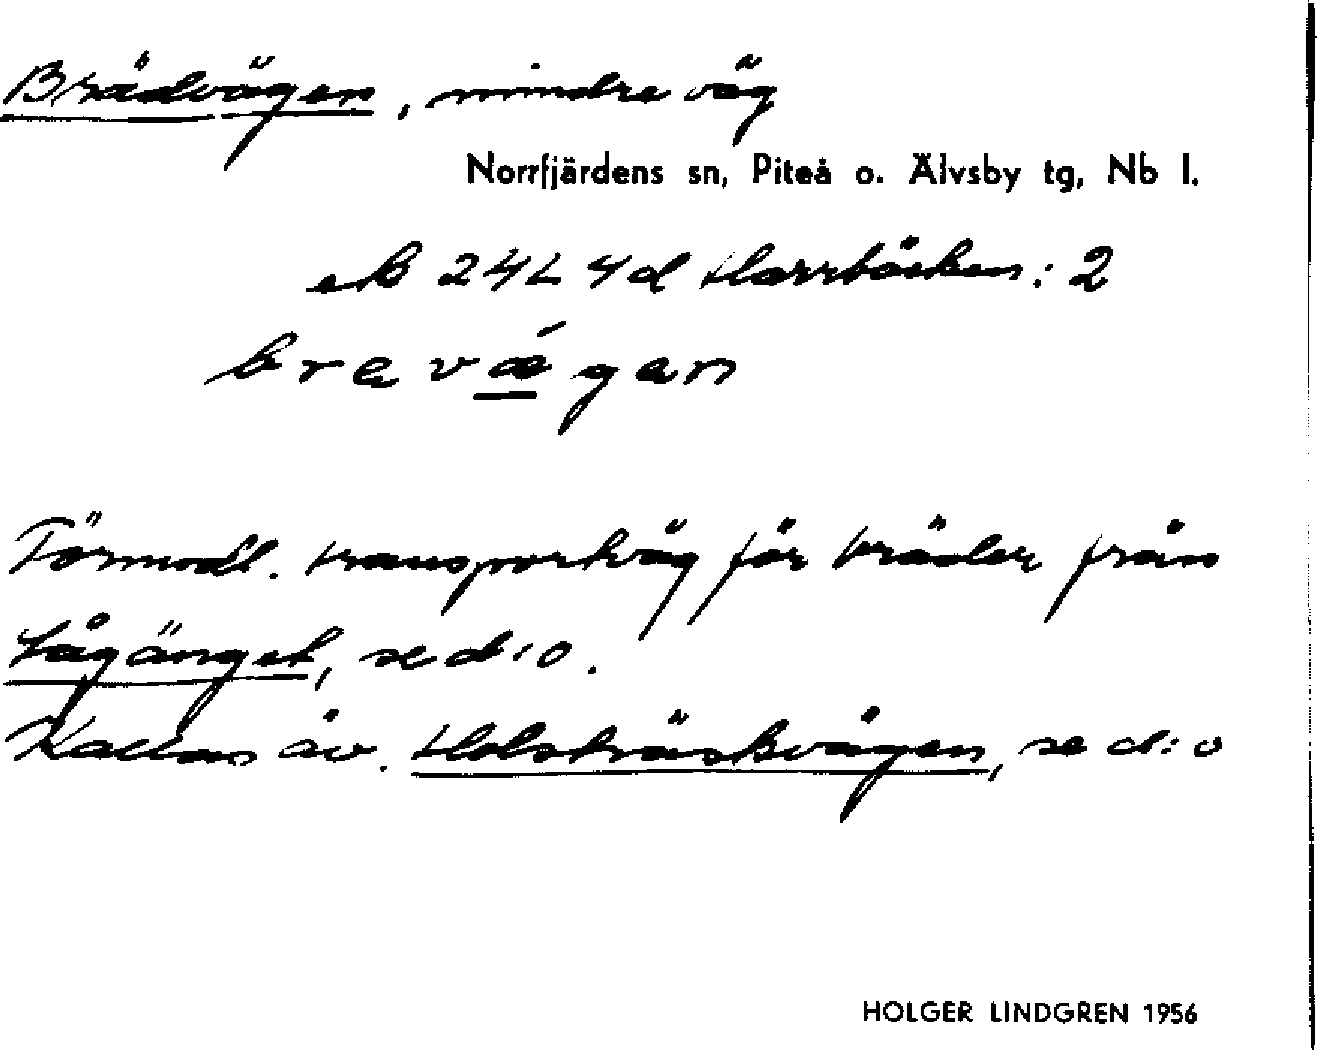 Brädvägen, mindre väg
Norrfjärdens sn, Piteå o. Älvsby tg, Nb l.
ek 24L 4d Harrbäcken: 2
brevǽgen
Förmodl. transportväg för bräder från
Sågänget, se d:o.
Kallas äv. Holsträskvägen, se d:o
HOLGER LINDGREN 1956